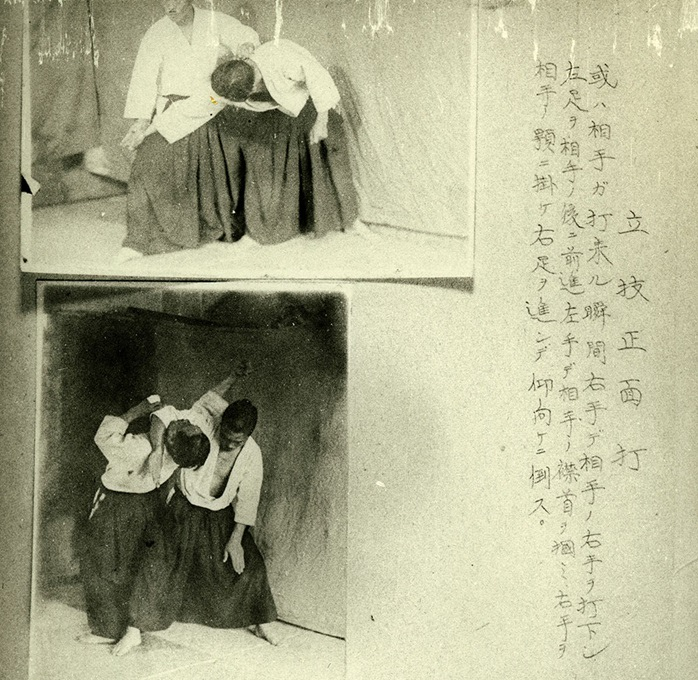 立技正面打
或ハ相手ガ打来ル瞬間右手デ相手ノ右手ヲ打下シ
左足ヲ相手ノ後ニ前進左手デ相手ノ襟首ヲ掴ミ右手ヲ
相手ノ顎ニ掛ケ右足ヲ進ンデ仰向ケニ倒ス。